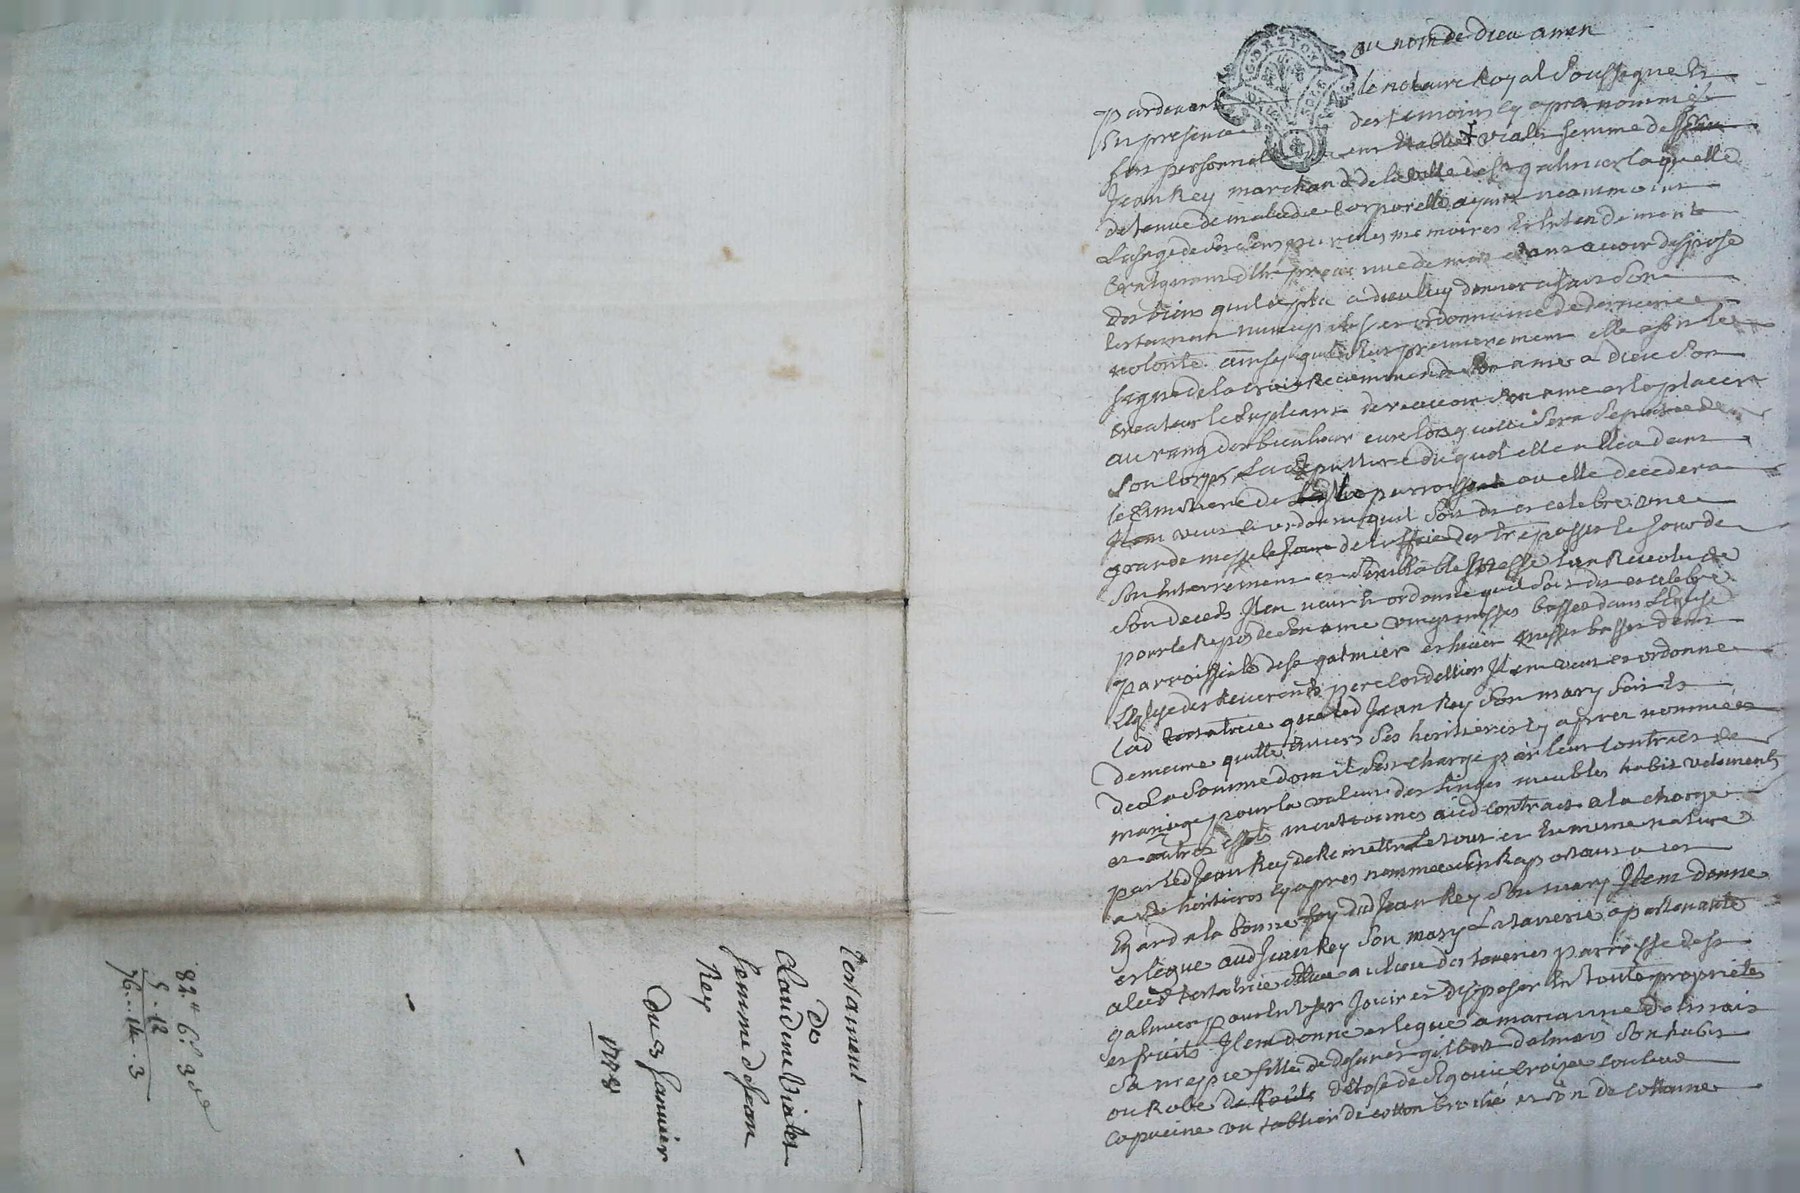 Testament
De
Claudine Viales
femme de Jean
Rey
Du 3 Janvier
82 6 3
5 . 12
76 .. 14 . 3
au nom de Dieu amen
Pardevant le notaire Royal Soussigné Et
En presence des temoins cy apres nommés
fut personnellement Viales femme de
Jean Rey marchand de la ville de St galmier laquelle
detenue de maladie corporelle ayant neammoins
L'usage de ses sens memoires Et Entendement
Craignant d'Etre prevenue de mort sans avoir disposé
des biens quil a plu a dieu luy donner a fait Son
testament nuncupatif et ordonnance de derniere
volonté ainsy quil suit premierement elle a fait le
signe de la Croix Recommandé Son ame a Dieu Son
Createur le Supliant de recevoir Son ame et la placer
au rang des bienheureux lorsquelle Sera Separée de
Son Corps La Sepulture duquel elle dans
le Cimetiere de parroisse ou elle decedera
Item veut et ordonne quil Soit dit et celebré une
grande messe de trepassés le jour de
Son Enterrement et Semblable Messe l'an Revolu de
Son deceds Item veut Et ordonne quil Soit dit et celebré
pour le Repos de Son ame vingt messes basses dans L'Eglise
parroissiale de St galmier et huit messes basses dans
L'Eglise des Reverends pere Cordelliers Item veut et ordonne
lad testatrice que led Jean Rey Son mary Soit Et
demeure quitte Envers Ses heritieres cy apres nommées
de La Somme dont il Est chargé par leur Contract de
mariage pour la valeur des linges meubles habit vetements
et autres effets mentionnes aud contract a la charge
par led Jean Rey de Remettre le tout en En meme nature
a heritieres cy apres nommées S'en Raportant a cet
Egard a la bonne foy dud Jean Rey Son mary Item donne
et legue aud Jean Rey Son mary La tannerie apartenante
a lad testatrice situee au lieu des taneries parroisse de St
galmier pour En user Jouir et disposer En toute proprieté
et fruits Item donne et legue a marianne Delmais
Sa niepce fille de Desunt gilbert delmais Son habit
ou Robe d'Etofe de croizée couleur
capucine un tablier de cotton broché et un de Cottonne